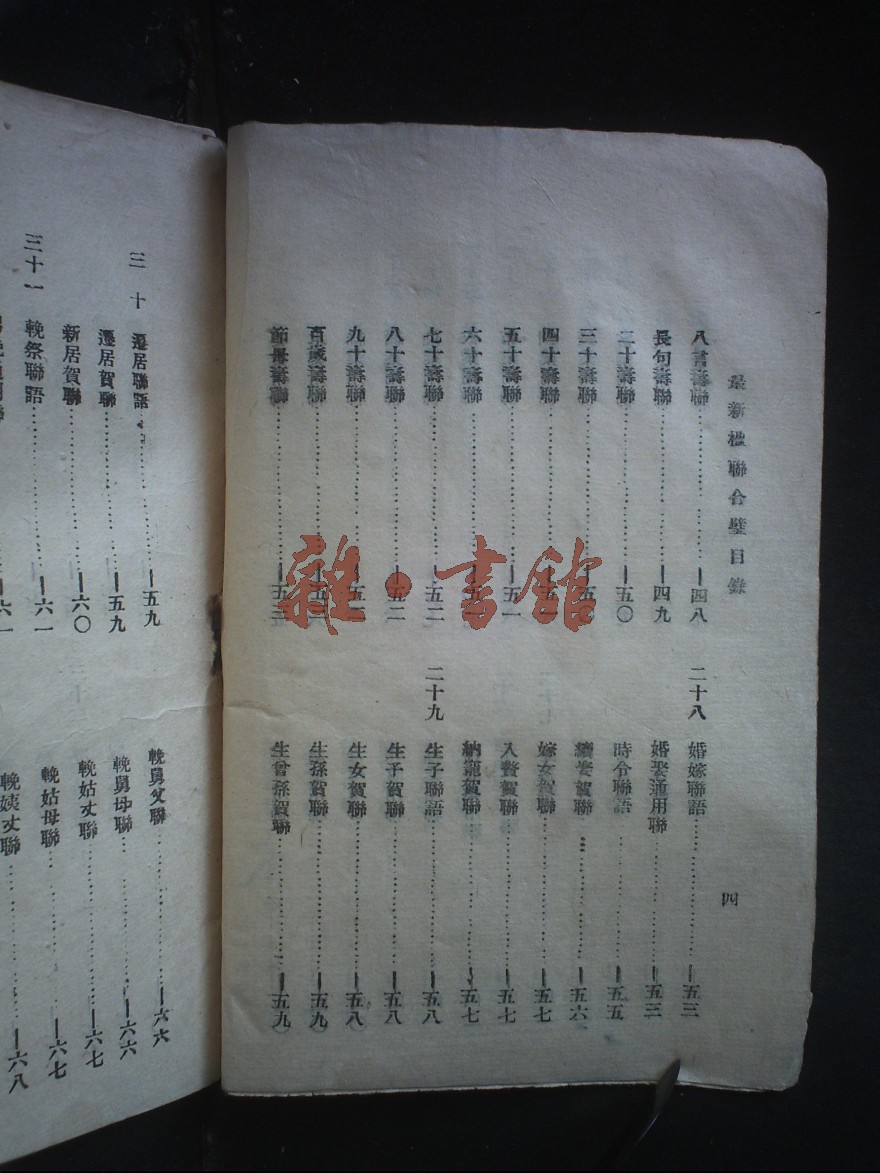 最新楹聯合璧目錄
四
八言壽聯…………一四八
長句壽聯…………一四九
二十壽聯…………一五〇
三十壽聯…………一五
四十壽聯…………一五
五十壽聯…………一五一
六十壽聯…………一五
七十壽聯…………一五二
八十壽聯…………一五二
九十壽聯…………一五
百歲壽聯…………一五
節母壽聯…………一五三
二十八
婚嫁聯語…………一五三
婚娶通用聯…………一五三
時令聯語…………一五五
續娶賀聯…………一五六
嫁女賀聯…………一五七
入贅賀聯…………一五七
納寵賀聯…………一五七
二十九
生子聯語…………一五八
生子賀聯…………一五八
生女賀聯…………一五八
生孫賀聯…………一五九
生曾孫賀聯…………一五九
三十
遷居聯語…………一五九
遷居賀聯…………一五九
新居賀聯…………一六〇
三十一
輓祭聯語…………一六一
一六一
輓舅父聯…………一六六
輓舅母聯…………一六六
輓姑丈聯…………一六七
輓姑母聯…………一六七
輓姨丈聯…………一六八
雜·書館